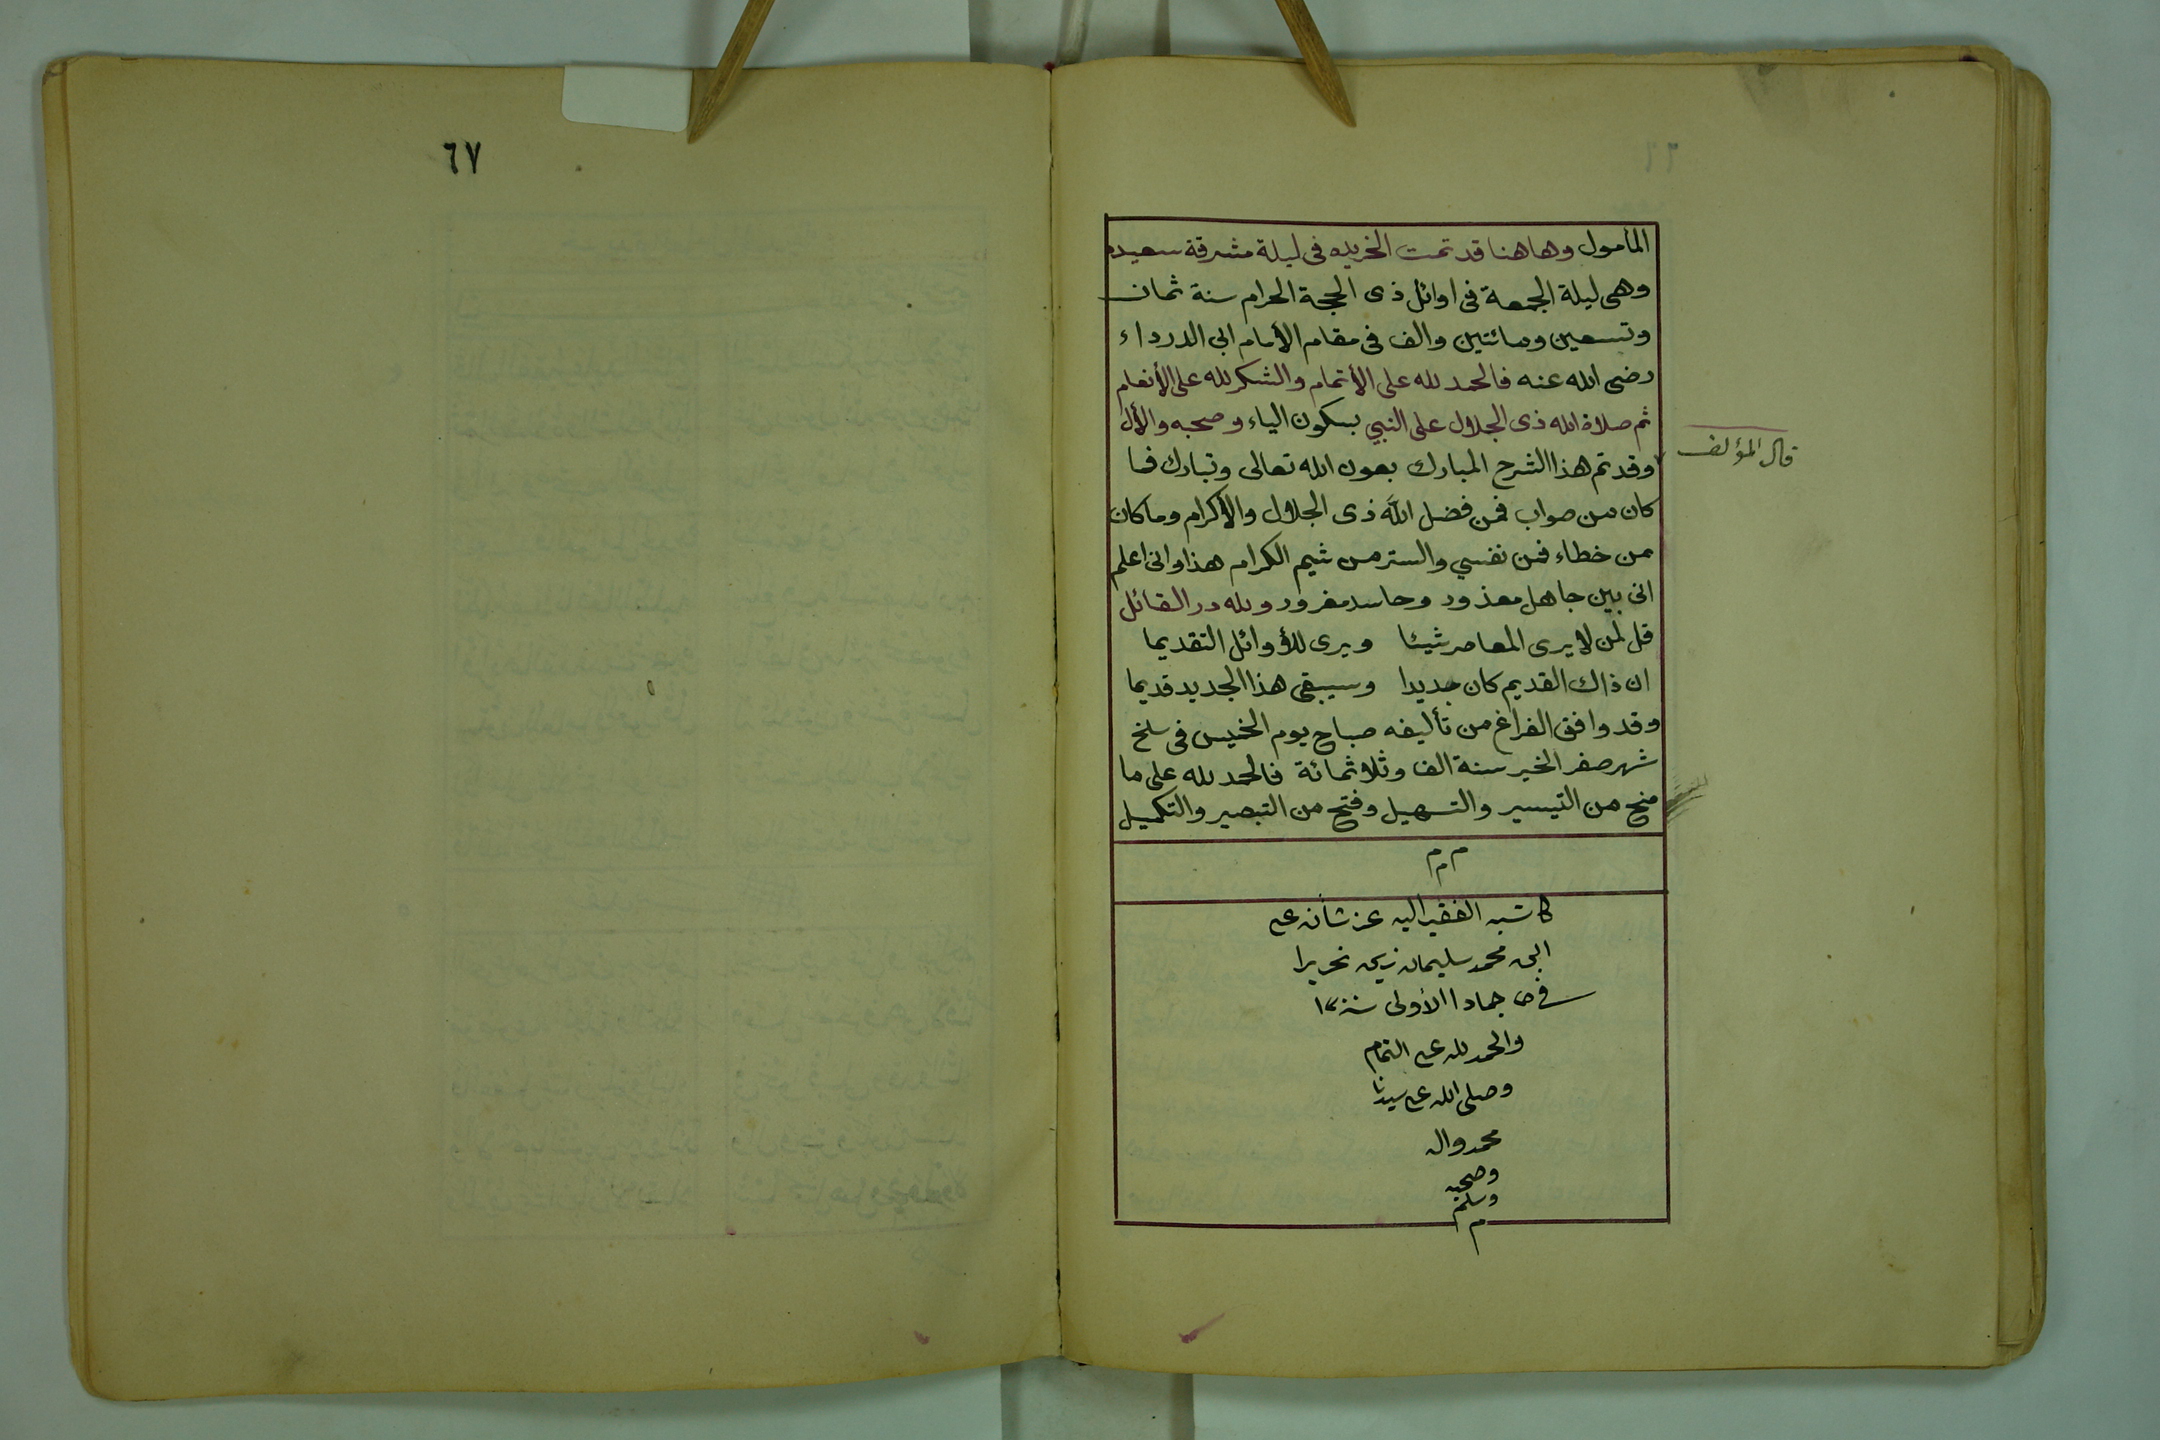 المأمول وهاهنا قد تمت الخريده فى ليلة مشرقة سعيده
وهى ليلة الجمعة فى اوائل ذى الحجة الحرام سنة ثمان
وتسعين ومائتين والف فى مقام الأمام ابى الدرداء
رضى الله عنه فالحمد لله على الأتمام والشكر لله على الأنعام
ثم صلاة الله ذى الجلال على النبي بسكون الياء وصحبه والأل
قال المؤلف
وقد تم هذا الشرح المبارك بعون الله تعالى وتبارك فما
كان من صواب فمن فضل الله ذى الجلال والأكرام وما كان
من خطاء فمن نفسي والستر من شيم الكرام هذا وانى اعلم
انى بين جاهل معذور وحاسد مغرور ولله در القائل
قل لمن لا يرى المعاصر شيئا ويرى للأوائل التقديما
ان ذاك القديم كان جديدا وسيبقى هذا الجديد قديما
وقد وافق الفراغ من تأليفه صباح يوم الخميس فى سلخ
شهر صفر الخير سنة الف وثلاثمائة فالحمد لله على ما
منح من التيسير والتسهيل وفتح من التبصير والتكميل
م م م
كاتبه الفقير اليه عز شأنه
ابى محمد سليمان تحريرا
فى جمادا الأولى سنة
والحمد لله على التمام
وصلى الله على سيدنا
محمد واله
وصحبه
وسلم
م
٦٧